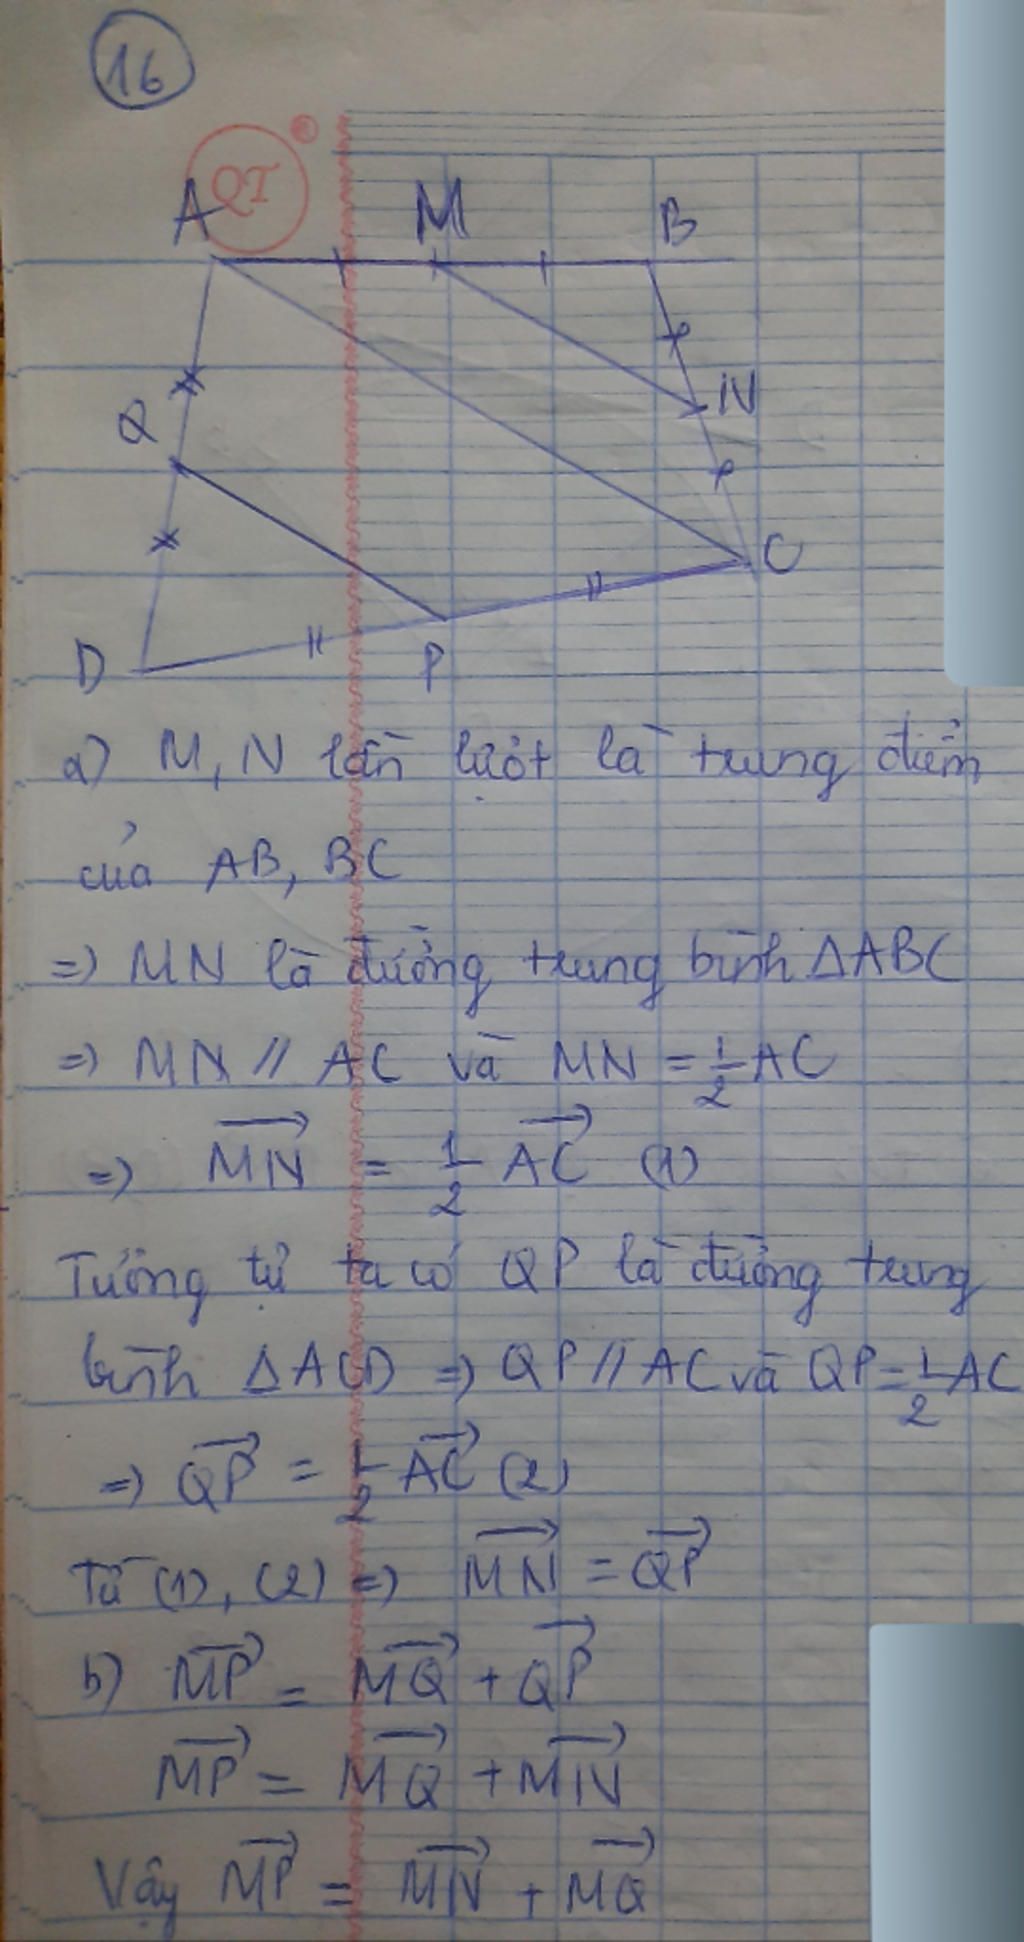 16
QT
A M B
Q N
C
D P
a) M, N lần lượt là trung điểm
của AB, BC
=> MN là đường trung bình ΔABC
=> MN // AC và MN = 1/2 AC
=> \overrightarrow{MN} = 1/2 \overrightarrow{AC} (1)
Tương tự ta có QP là đường trung
bình ΔACD => QP // AC và QP = 1/2 AC
=> \overrightarrow{QP} = 1/2 \overrightarrow{AC} (2)
Từ (1), (2) => \overrightarrow{MN} = \overrightarrow{QP}
b) \overrightarrow{MP} = \overrightarrow{MQ} + \overrightarrow{QP}
\overrightarrow{MP} = \overrightarrow{MQ} + \overrightarrow{MN}
Vậy \overrightarrow{MP} = \overrightarrow{MN} + \overrightarrow{MQ}